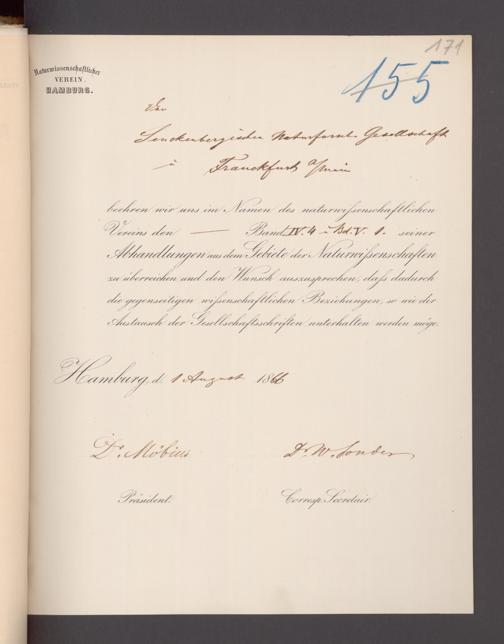 171
155
Naturwissenschaftlicher
VEREIN.
HAMBURG.
Der
Senckenbergischen Naturforsch. Gesellschaft
Franckfurt a/Main
beehren wir uns im Namen des naturwissenschaftlichen
Vereins den — Band IV. 4 u Bd. V. 1. seiner
Abhandlungen aus dem Gebiete der Naturwissenschaften
zu überreichen und den Wunsch auszusprechen, dass dadurch
die gegenseitigen wissenschaftlichen Beziehungen, so wie der
Austausch der Gesellschaftsschriften unterhalten werden möge.
Hamburg, d. 1 August 1866
Dr. Möbius
Dr. W. Sonder
Präsident.
Corresp. Secretair.